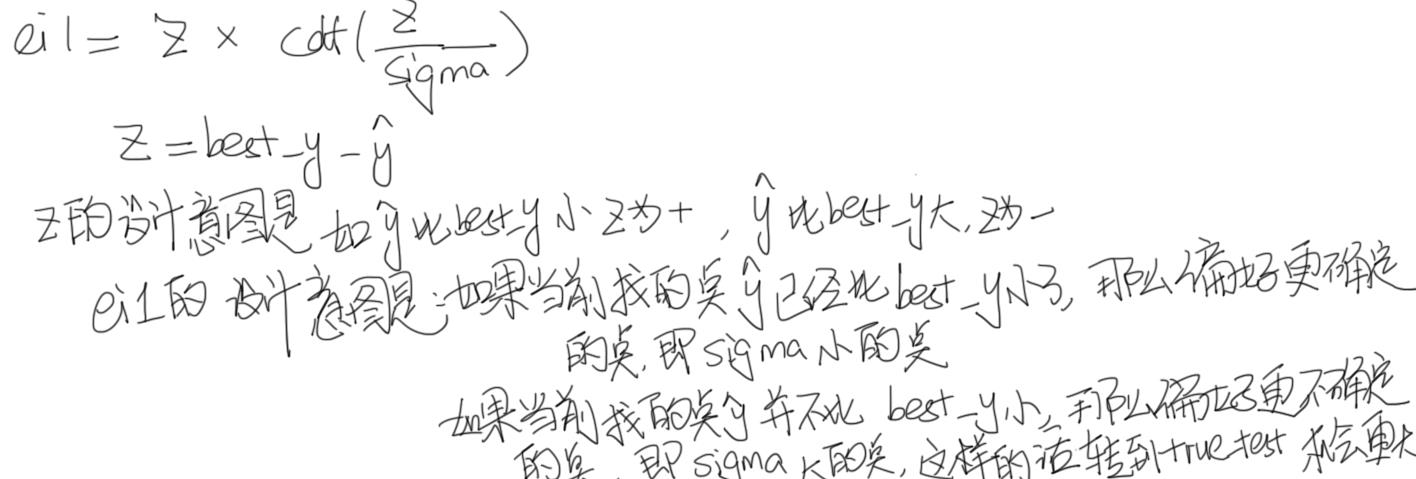 ei1 = z × cdf(z/sigma)
z = best_y - ŷ
z的设计意图是 如ŷ比best_y小 z为+，ŷ比best_y大，z为-
ei1的设计意图是：如果当前找的点ŷ已经比best_y小了，那么偏好更确定
的点，即sigma小的点
如果当前找的点ŷ并不比best_y小，那么偏好更不确定
的点，即sigma大的点，这样的话转到true test 机会更大